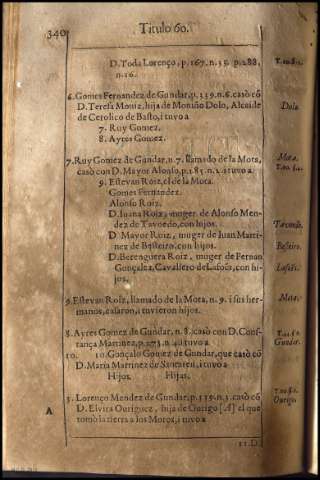 340
Titulo 60.
D. Toda Lorenço, p. 167. n. 15. p. 288.
n. 16.
6. Gomes Fernandez de Gundar, p. 339. n. 6. casò cõ
D. Teresa Moniz, hija de Moniño Dolo, Alcaide
de Cerolico de Basto, i tuvo a
7. Ruy Gomez.
8. Ayres Gomez.
Dolo.
7. Ruy Gomez de Gundar, n. 7. llamado de la Mota,
casò con D. Mayor Alonso, p. 185. n. 2. i tuvo a
9. Estevan Roiz, el de la Mota.
Gomes Fernandez.
Alonso Roiz.
D. Iuana Roiz, muger de Alonso Men-
dez de Tavoedo, con hijos.
D. Mayor Roiz, muger de Iuan Marti-
nez de Besteiro, con hijos.
D. Berenguera Roiz, muger de Fernan
Gonçalez, Cavallero de Lafoẽs, con hi-
jos.
Mota.
Tavoedo.
Besteiro.
Lafoẽs.
9. Estevan Roiz, llamado de la Mota, n. 9. i sus her-
manos, casaron, i tuvieron hijos.
Mota.
8. Ayres Gomez de Gundar, n. 8. casò con D. Cons-
tança Martinez, p. 273. n. 4. i tuvo a
10. 10. Gonçalo Gomez de Gundar, que casò cõ
D. Maria Martinez de i tuvo a
Hijos. Hijas.
Gundar.
3. Lorenço Mendez de Gundar, p. 339. n. 3. casò cõ
D. Elvira Ouriguez, hija de Ourigo [A] el que
tomò la tierra a los Moros, i tuvo a
Ourigo.
A
11. D.